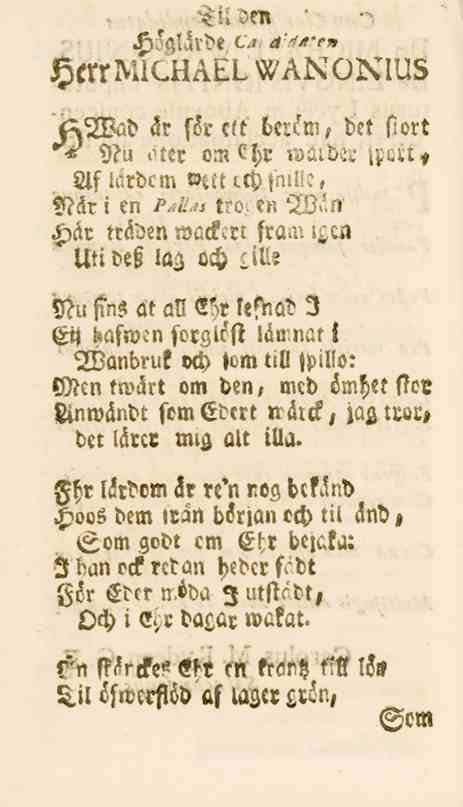 Til den
Höglärde Candidaten
Herr MICHAEL WANONIUS
HWad är för ett beröm, det stort
Nu åter om Ehr wälder sport,
Af lärdom wett och snille,
När i en Pallas trogen Wän
Här träden wackert fram igen
Uti deß lag och gille
Nu fins at all Ehr lefnad I
Eij hafwen sorglöst lämnat i
Wanbruk och som till spillo:
Men twärt om den, med ömhet stor
Anwändt som Edert wärck, jag tror,
det lärer mig alt illa.
Ehr lärdom är re'n nog bekänd
Hoos dem från början och til änd,
Som godt om Ehr bejaka:
I han ock redan heder fådt
För Eder möda I utstådt,
Och i Ehr dagar wakat.
En skörckes Ehr en krantz till lön
Til öfwerflöd af lager grön,
Som